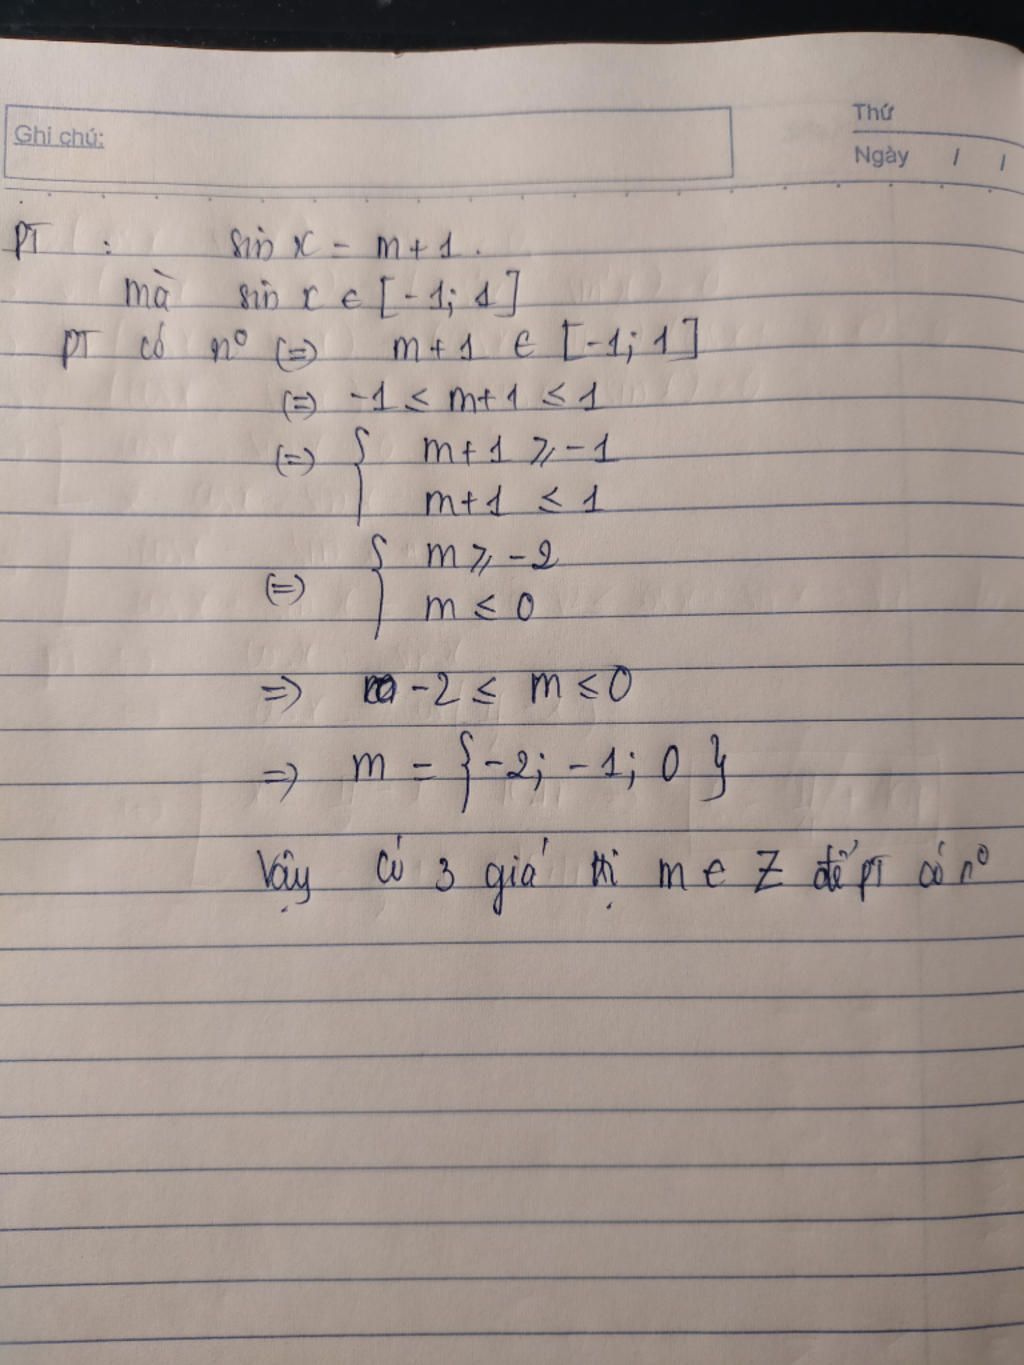 Ghi chú:
Thứ
Ngày / /
PT : sin x = m + 1.
mà sin x ∈ [-1; 1]
PT có n⁰ (=) m + 1 ∈ [-1; 1]
(=) -1 ≤ m+1 ≤ 1
(=) { m+1 ⩾ -1
m+1 ≤ 1
(=) { m ⩾ -2
m ≤ 0
=> -2 ≤ m ≤ 0
=> m = {-2; -1; 0}
Vậy có 3 giá trị m ∈ Z để PT có n⁰